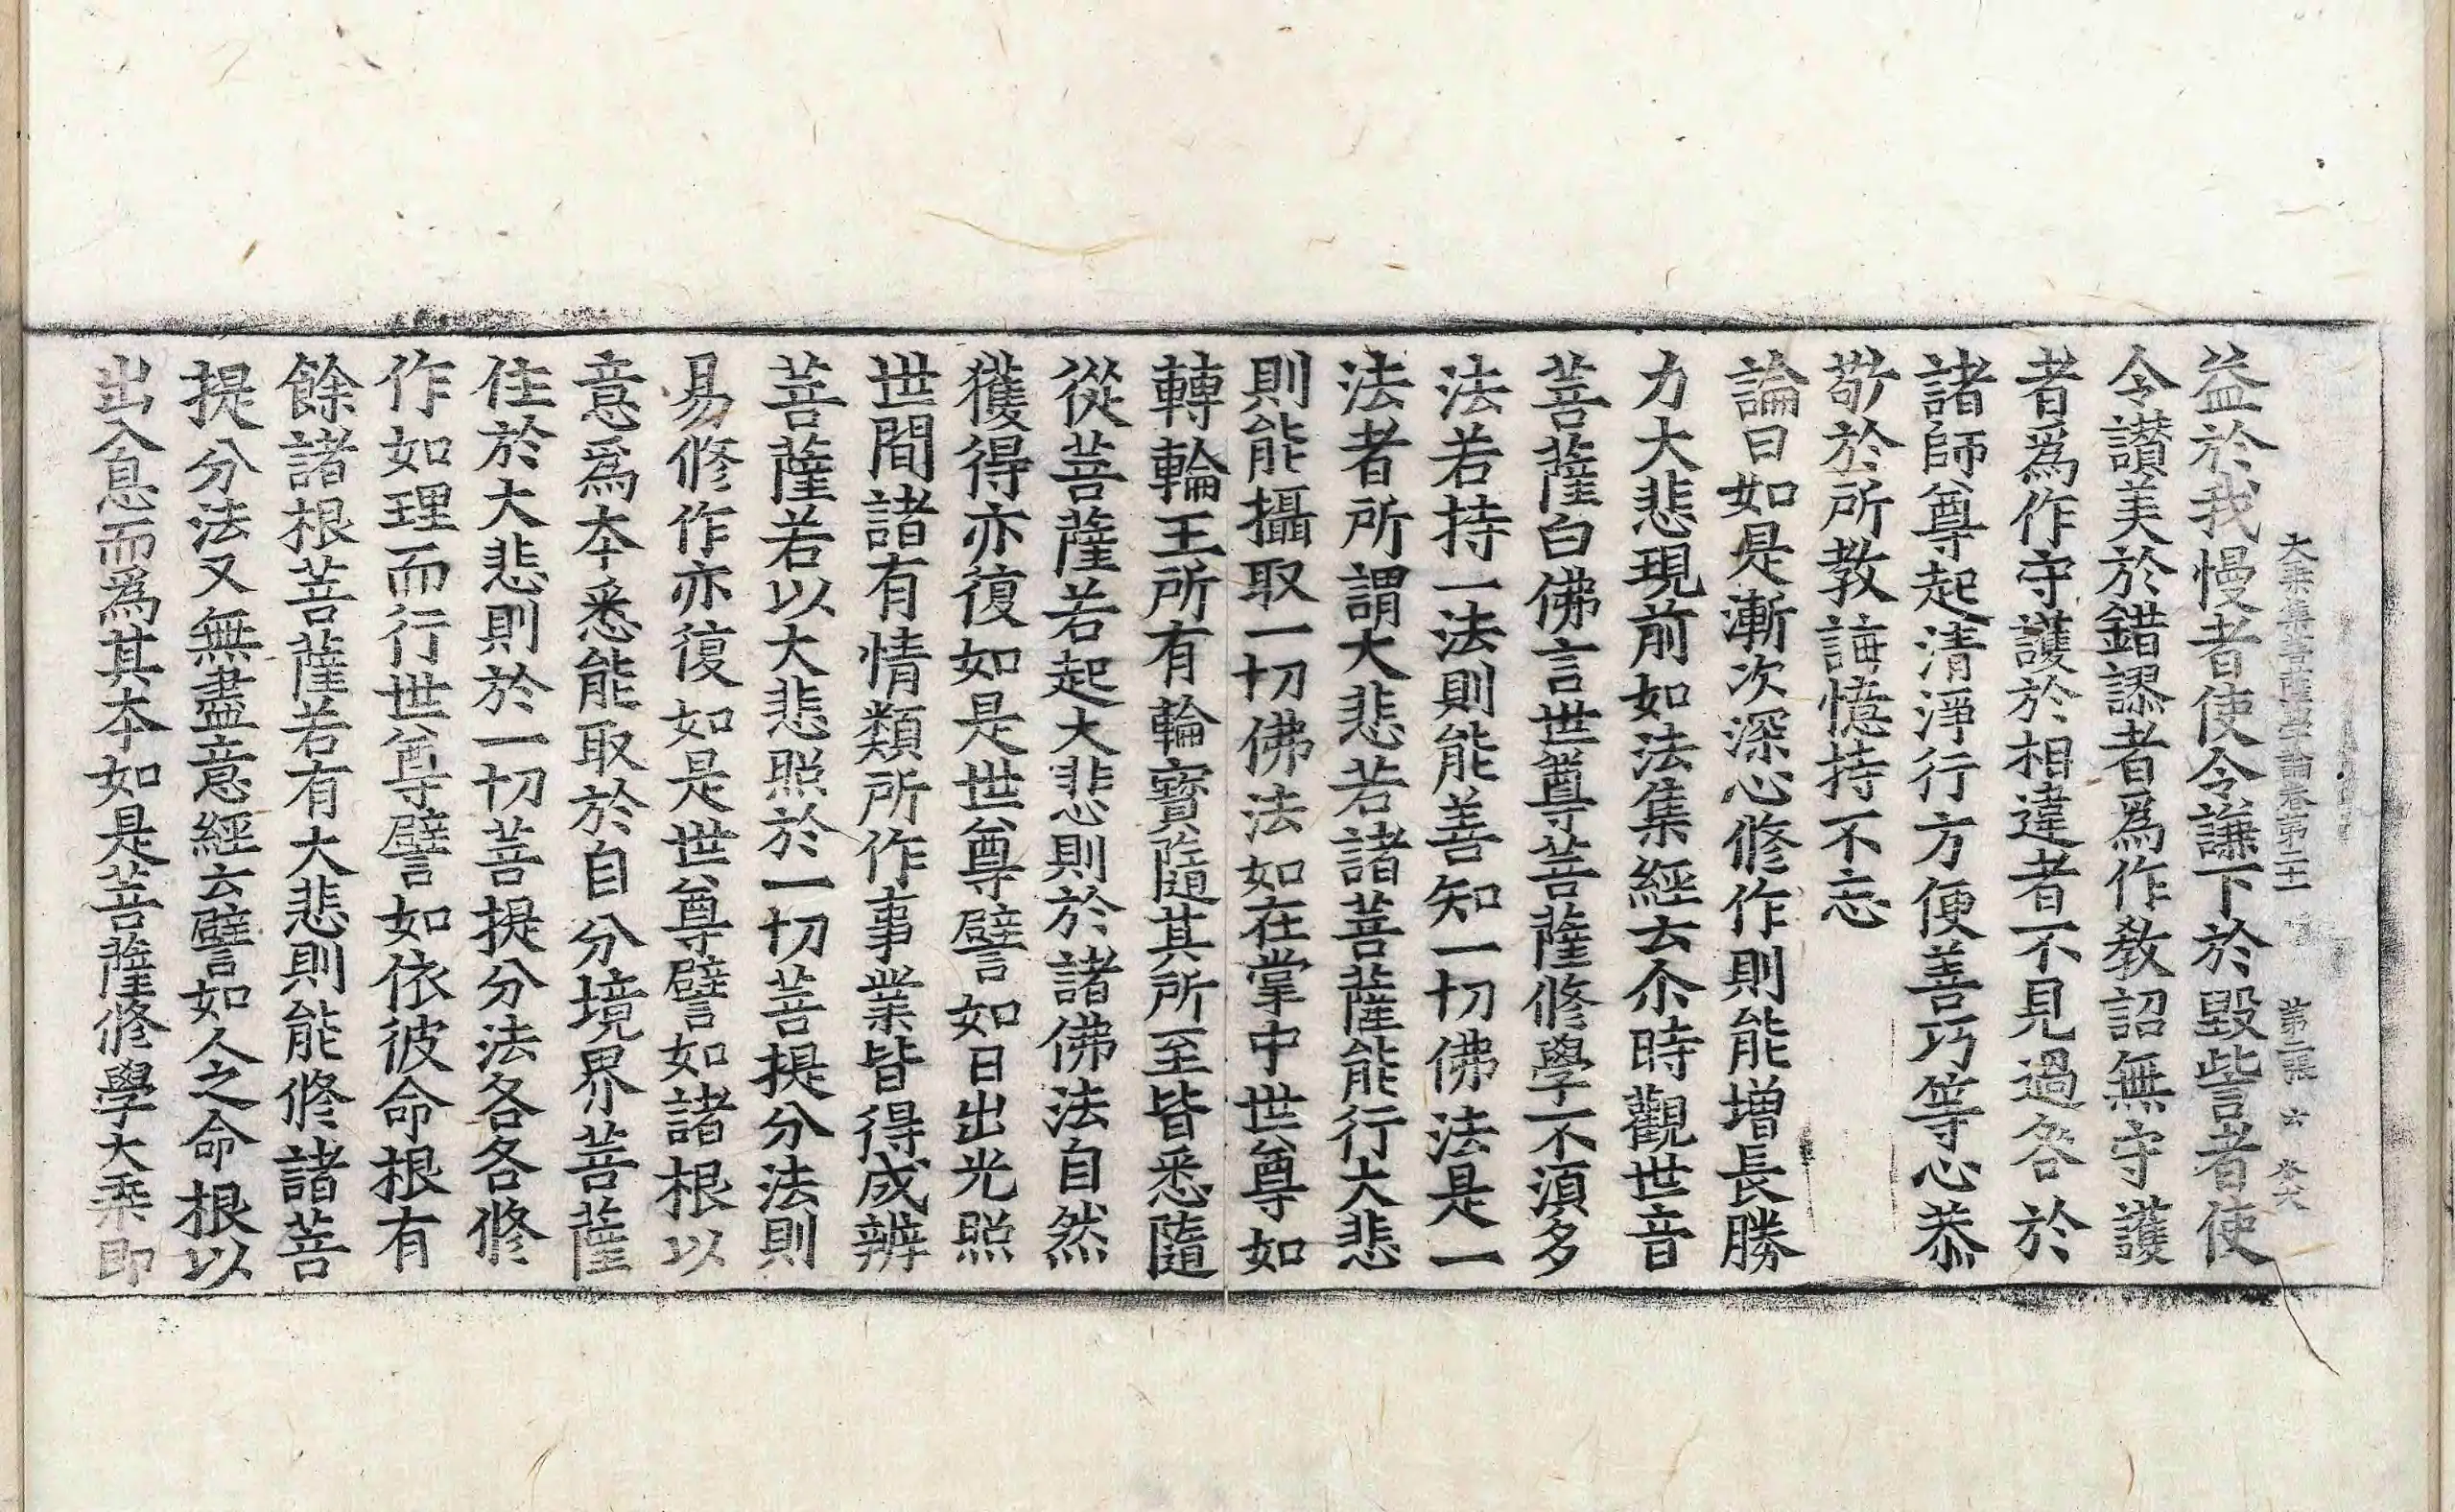 大乘集菩薩學論卷第二十一 第二張 六
益於我慢者使令謙下於毀訾者使
令讃美於錯謬者爲作教詔無守護
者爲作守護於相違者不見過咎於
諸師尊起清淨行方便善巧等心恭
敬於所教誨憶持不忘
論曰如是漸次深心修作則能增長勝
力大悲現前如法集經云尒時觀世音
菩薩白佛言世尊菩薩修學不湏多
法若持一法則能善知一切佛法是一
法者所謂大悲若諸菩薩能行大悲
則能攝取一切佛法如在掌中世尊如
轉輪王所有輪寶隨其所至皆悉隨
從菩薩若起大悲則於諸佛法自然
獲得亦復如是世尊譬如日出光照
世間諸有情類所作事業皆得成辨
菩薩若以大悲照於一切菩提分法則
易修作亦復如是世尊譬如諸根以
意爲本悉能取於自分境界菩薩
住於大悲則於一切菩提分法各各修
作如理而行世尊譬如依彼命根有
餘諸根菩薩若有大悲則能修諸菩
提分法又無盡意經云譬如人之命根以
出入息而爲其本如是菩薩修學大乘即